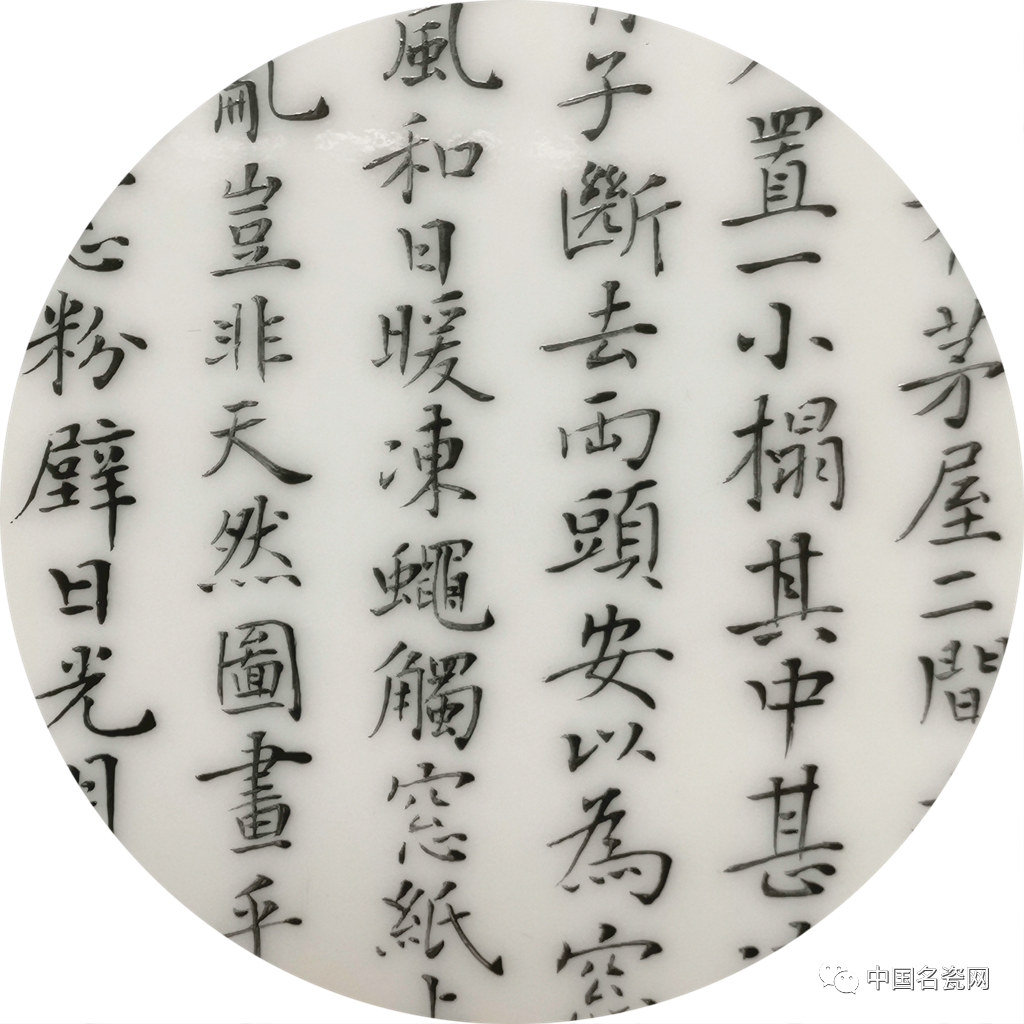 茅屋二間
置一小榻其中甚
子斷去両頭安以為窓
風和日暖凍蠅觸窓紙上
亂豈非天然圖畫乎
窓粉壁日光月
中国名瓷网